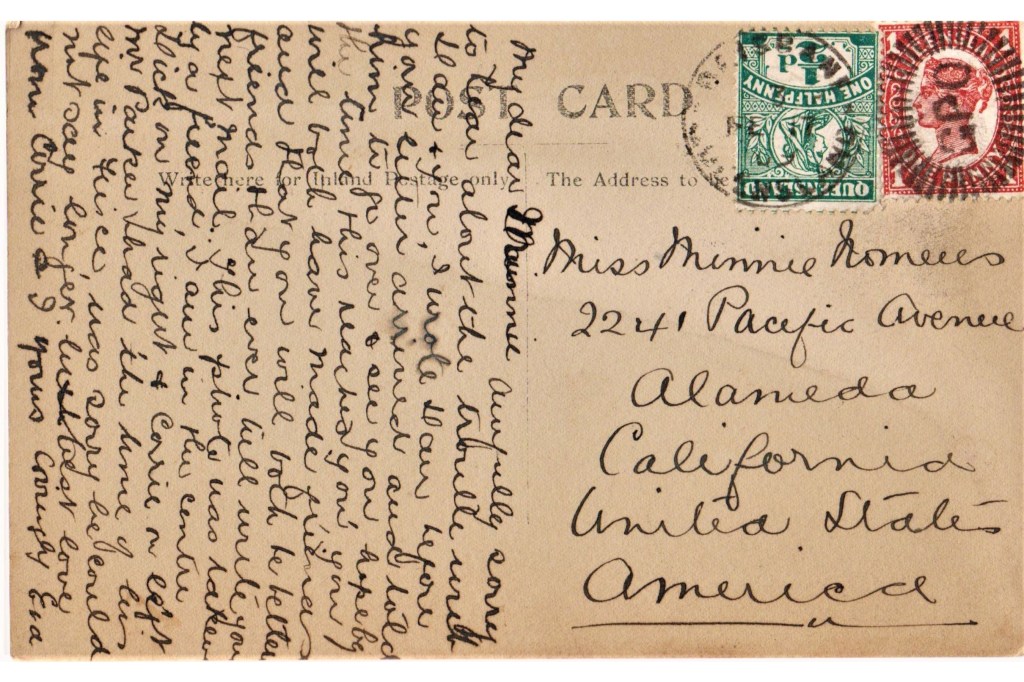 POST CARD
Write here for Inland Postage only.
The Address to be
QUEENSLAND
½d
ONE HALFPENNY
BRISBANE
QUEENSLAND
1
1
ONE PENNY
GPO
My dear Minnie Awfully sorry
to hear about the trouble with
& you, I wrote before
your letter arrived and told
him to go over & see you
the time this reaches you you
will both have made friends
and that you will both be better
friends than ever will write you
next mail. This photo was taken
by a I am in the centre
Dick on my right & Carrie on left
Mr Parker had the time of his
life in Frisco, was sorry he could
not stay longer. best love
from Carrie & I yours Eva
Miss Minnie
2241 Pacific Avenue
Alameda
California
United States
America